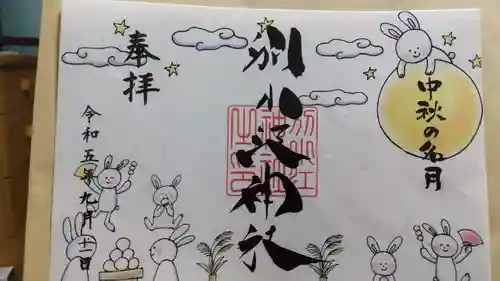 中秋の名月
別小江神社
奉拝
令和五年九月十一日